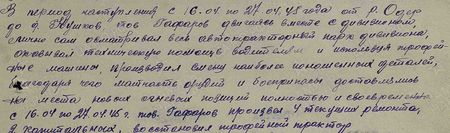 В период наступления с 16.04 по 27.04.45 года от р. Одер
до д. тов. Гафаров двигаясь вместе с дивизионом,
лично сам осматривал весь автотракторный парк дивизиона,
оказывал техническую помощь водителям и используя трофей-
ные машины, производил смену наиболее поношенных деталей,
благодаря чего матчасть орудий и боеприпасы доставлялись
на места новых огневых позиций полностью и своевременно
с 16.04 по 27.04.45 г. тов. Гафаров произвел 4 текущих ремонта,
2 капитальных, восстановил трофейный трактор